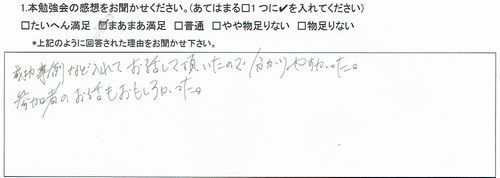 1.本勉強会の感想をお聞かせください。(あてはまる□1つに✔を入れてください)
□たいへん満足 ☑まあまあ満足 □普通 □やや物足りない □物足りない
*上記のように回答された理由をお聞かせ下さい。
成功事例など入れてお話して頂いたので分かりやすかった。
参加者のお話もおもしろかった。